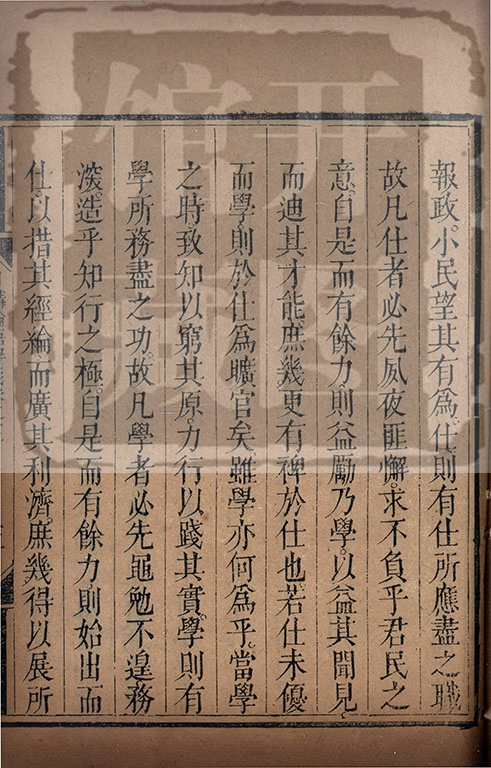 報政。小民望其有為。仕則有仕所應盡之職
故凡仕者必先夙夜匪懈。求不負乎君民之
意。自是而有餘力。則益勵乃學。以益其聞見
而迪其才能。庶幾更有裨於仕也若仕未優
而學。則於仕爲曠官矣。雖學亦何爲乎。當學
之時。致知以窮其原。力行以踐其實。學則有
學所務盡之功。故凡學者必先黽勉不遑。務
深造乎知行之極。自是而有餘力則始出而
仕。以措其經綸。而廣其利濟。庶幾得以展所